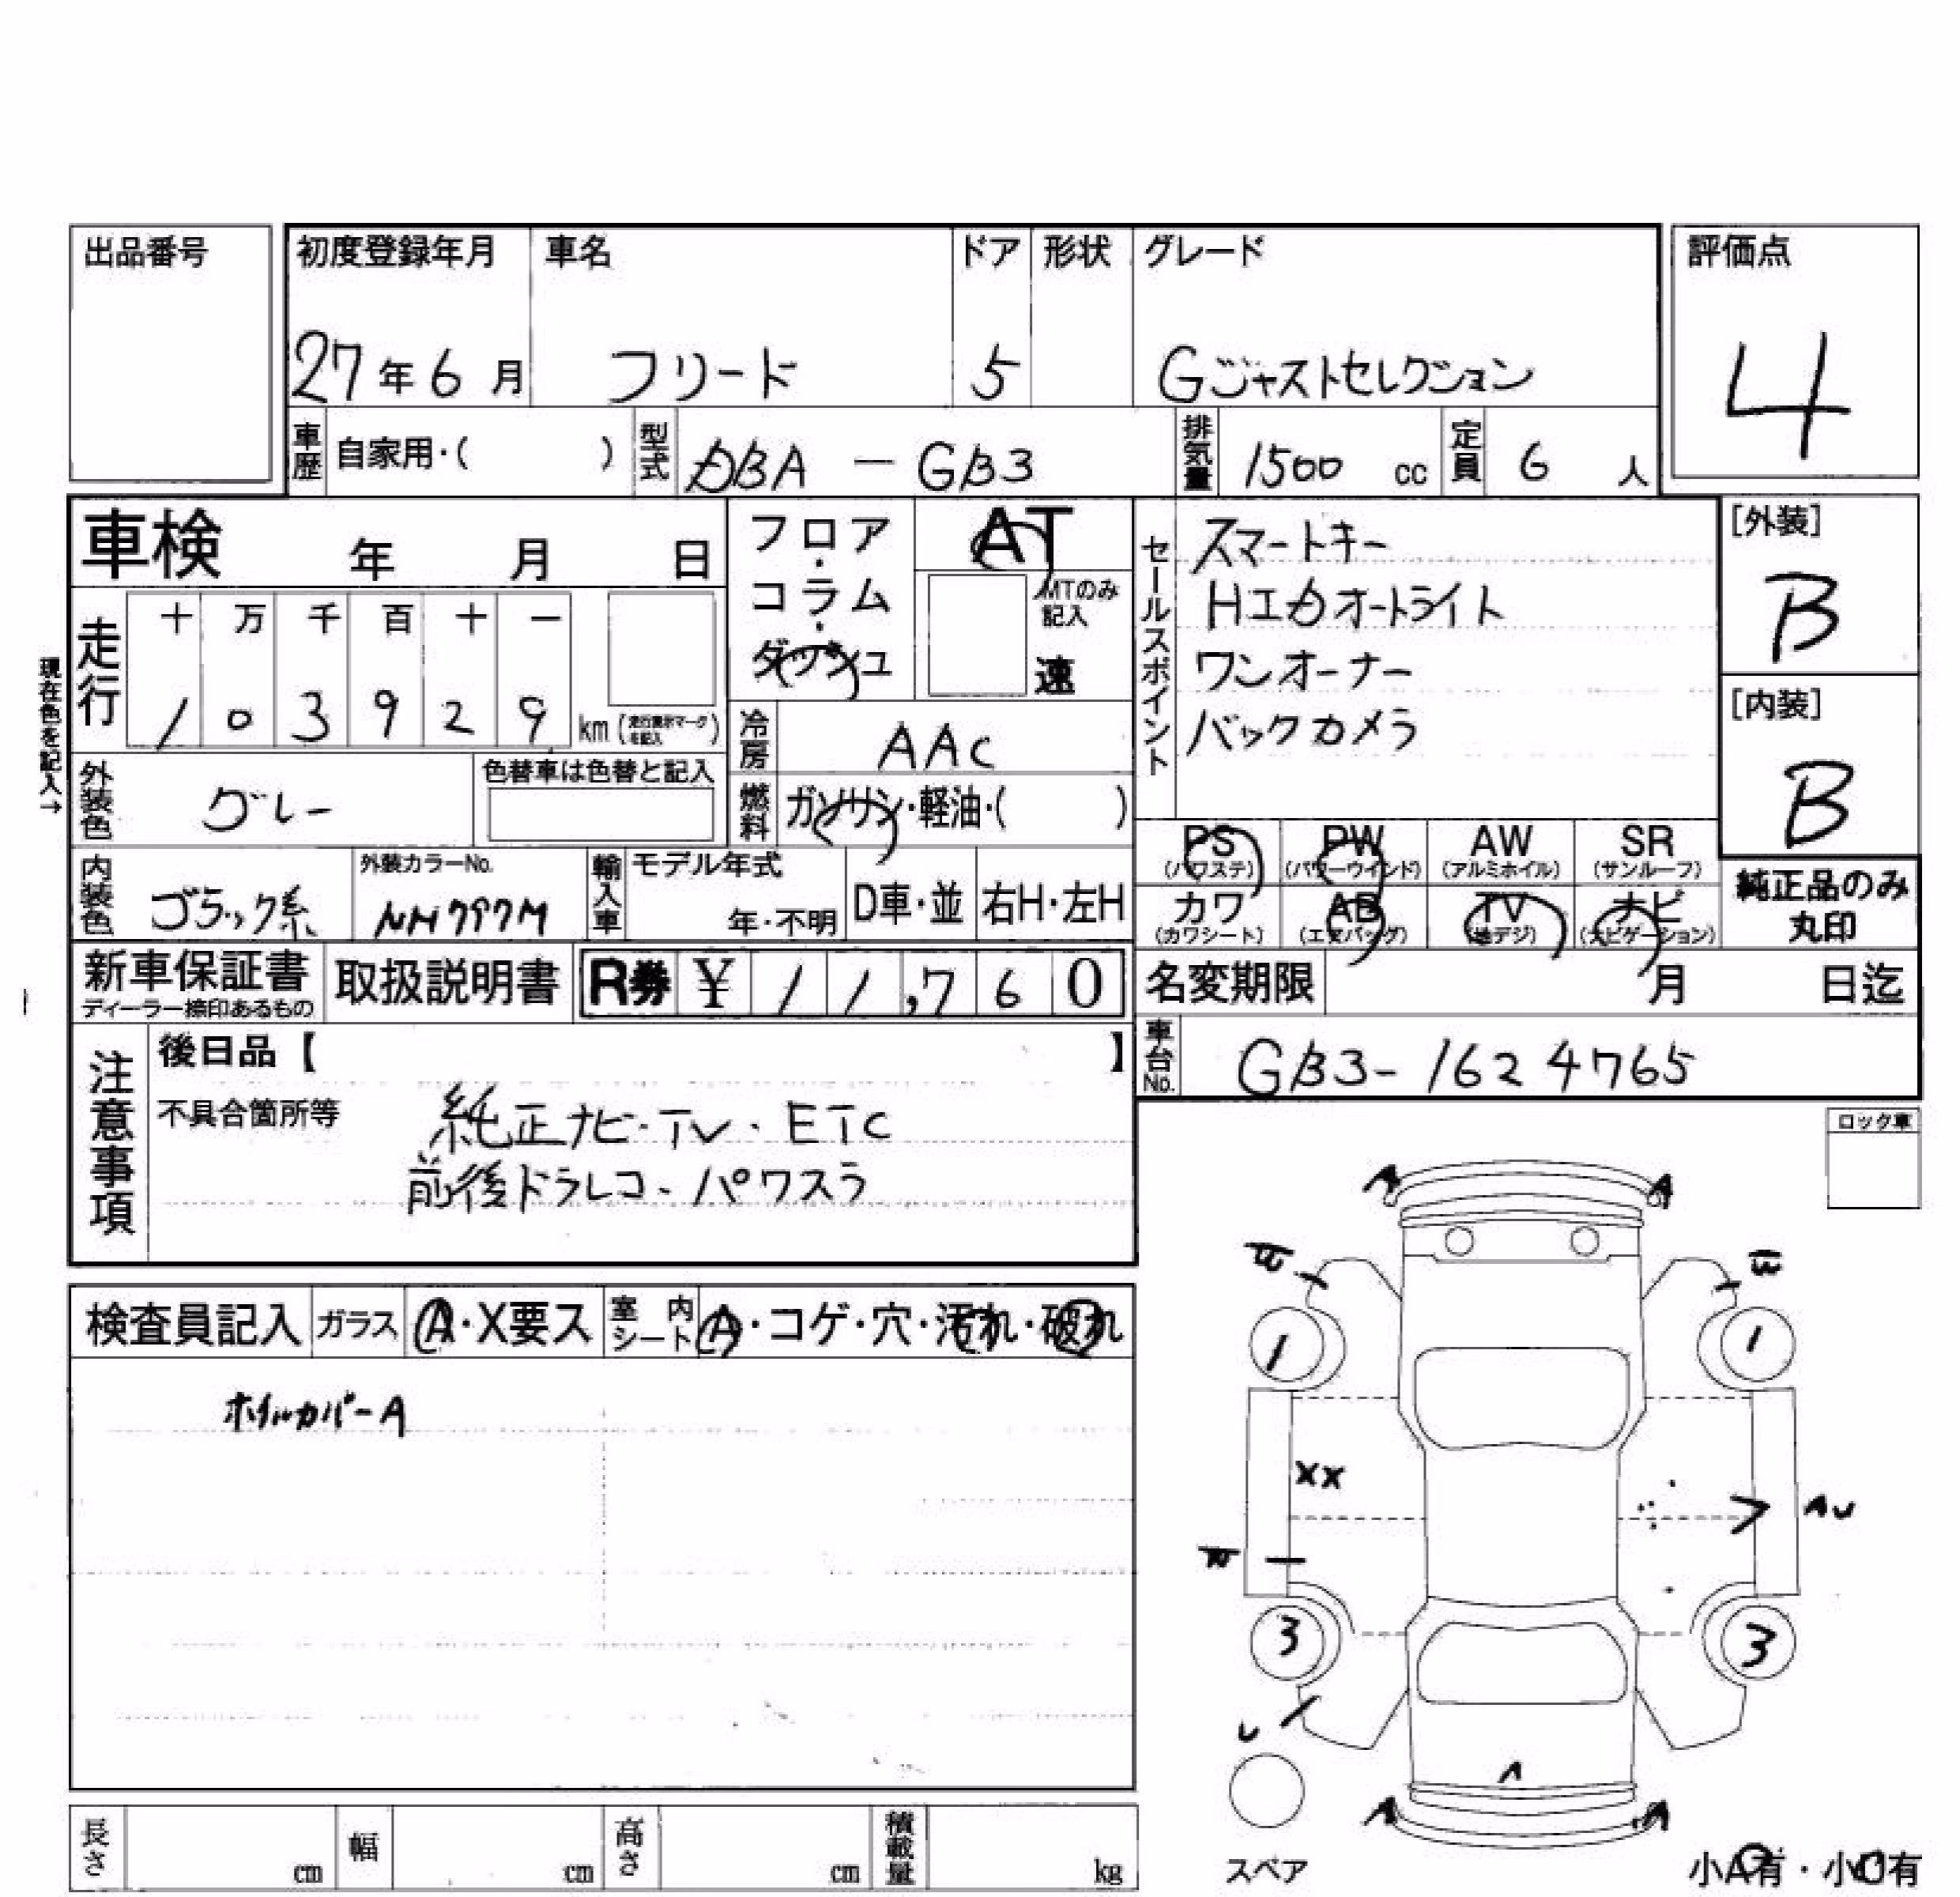 出品番号
初度登録年月 車名 ドア 形状 グレード 評価点
27年6月 フリード 5 Gジャストセレクション 4
車歴 自家用・( ) 型式 DBA - GB3 排気量 1500 cc 定員 6 人
車検 年 月 日
フロア・コラム・ダッシュ
AT
MTのみ記入
速
セールスポイント
スマートキー
HIDオートライト
ワンオーナー
バックカメラ
[外装]
B
[内装]
B
現在色を記入→
走行 十 万 千 百 十 一
1 0 3 9 2 9 km
冷房 AAC
外装色 グレー 色替車は色替と記入
燃料 ガソリン・軽油・( )
PS (パワステ) PW (パワーウインド) AW (アルミホイル) SR (サンルーフ)
カワ (カワシート) AB (エアバッグ) TV (地デジ) ナビ (ナビゲーション)
純正品のみ丸印
内装色 ブラック系 外装カラーNo. NH797M 輸入車 モデル年式 年・不明 D車・並 右H・左H
新車保証書 ディーラー捺印あるもの 取扱説明書 R券 ¥ 11,760
名変期限 月 日迄
車台No. GB3-1624765
注意事項
後日品【 】
不具合箇所等 純正ナビ・TV・ETC
前後ドラレコ・パワスラ
ロック車
検査員記入 ガラス A・X要ス 室内シート A・コゲ・穴・汚れ・破れ
ホイルカバーA
A A
1 1
XX
AU
3 3
U
A
A A
スペア
小A有・小U有
長さ cm 幅 cm 高さ cm 積載量 kg